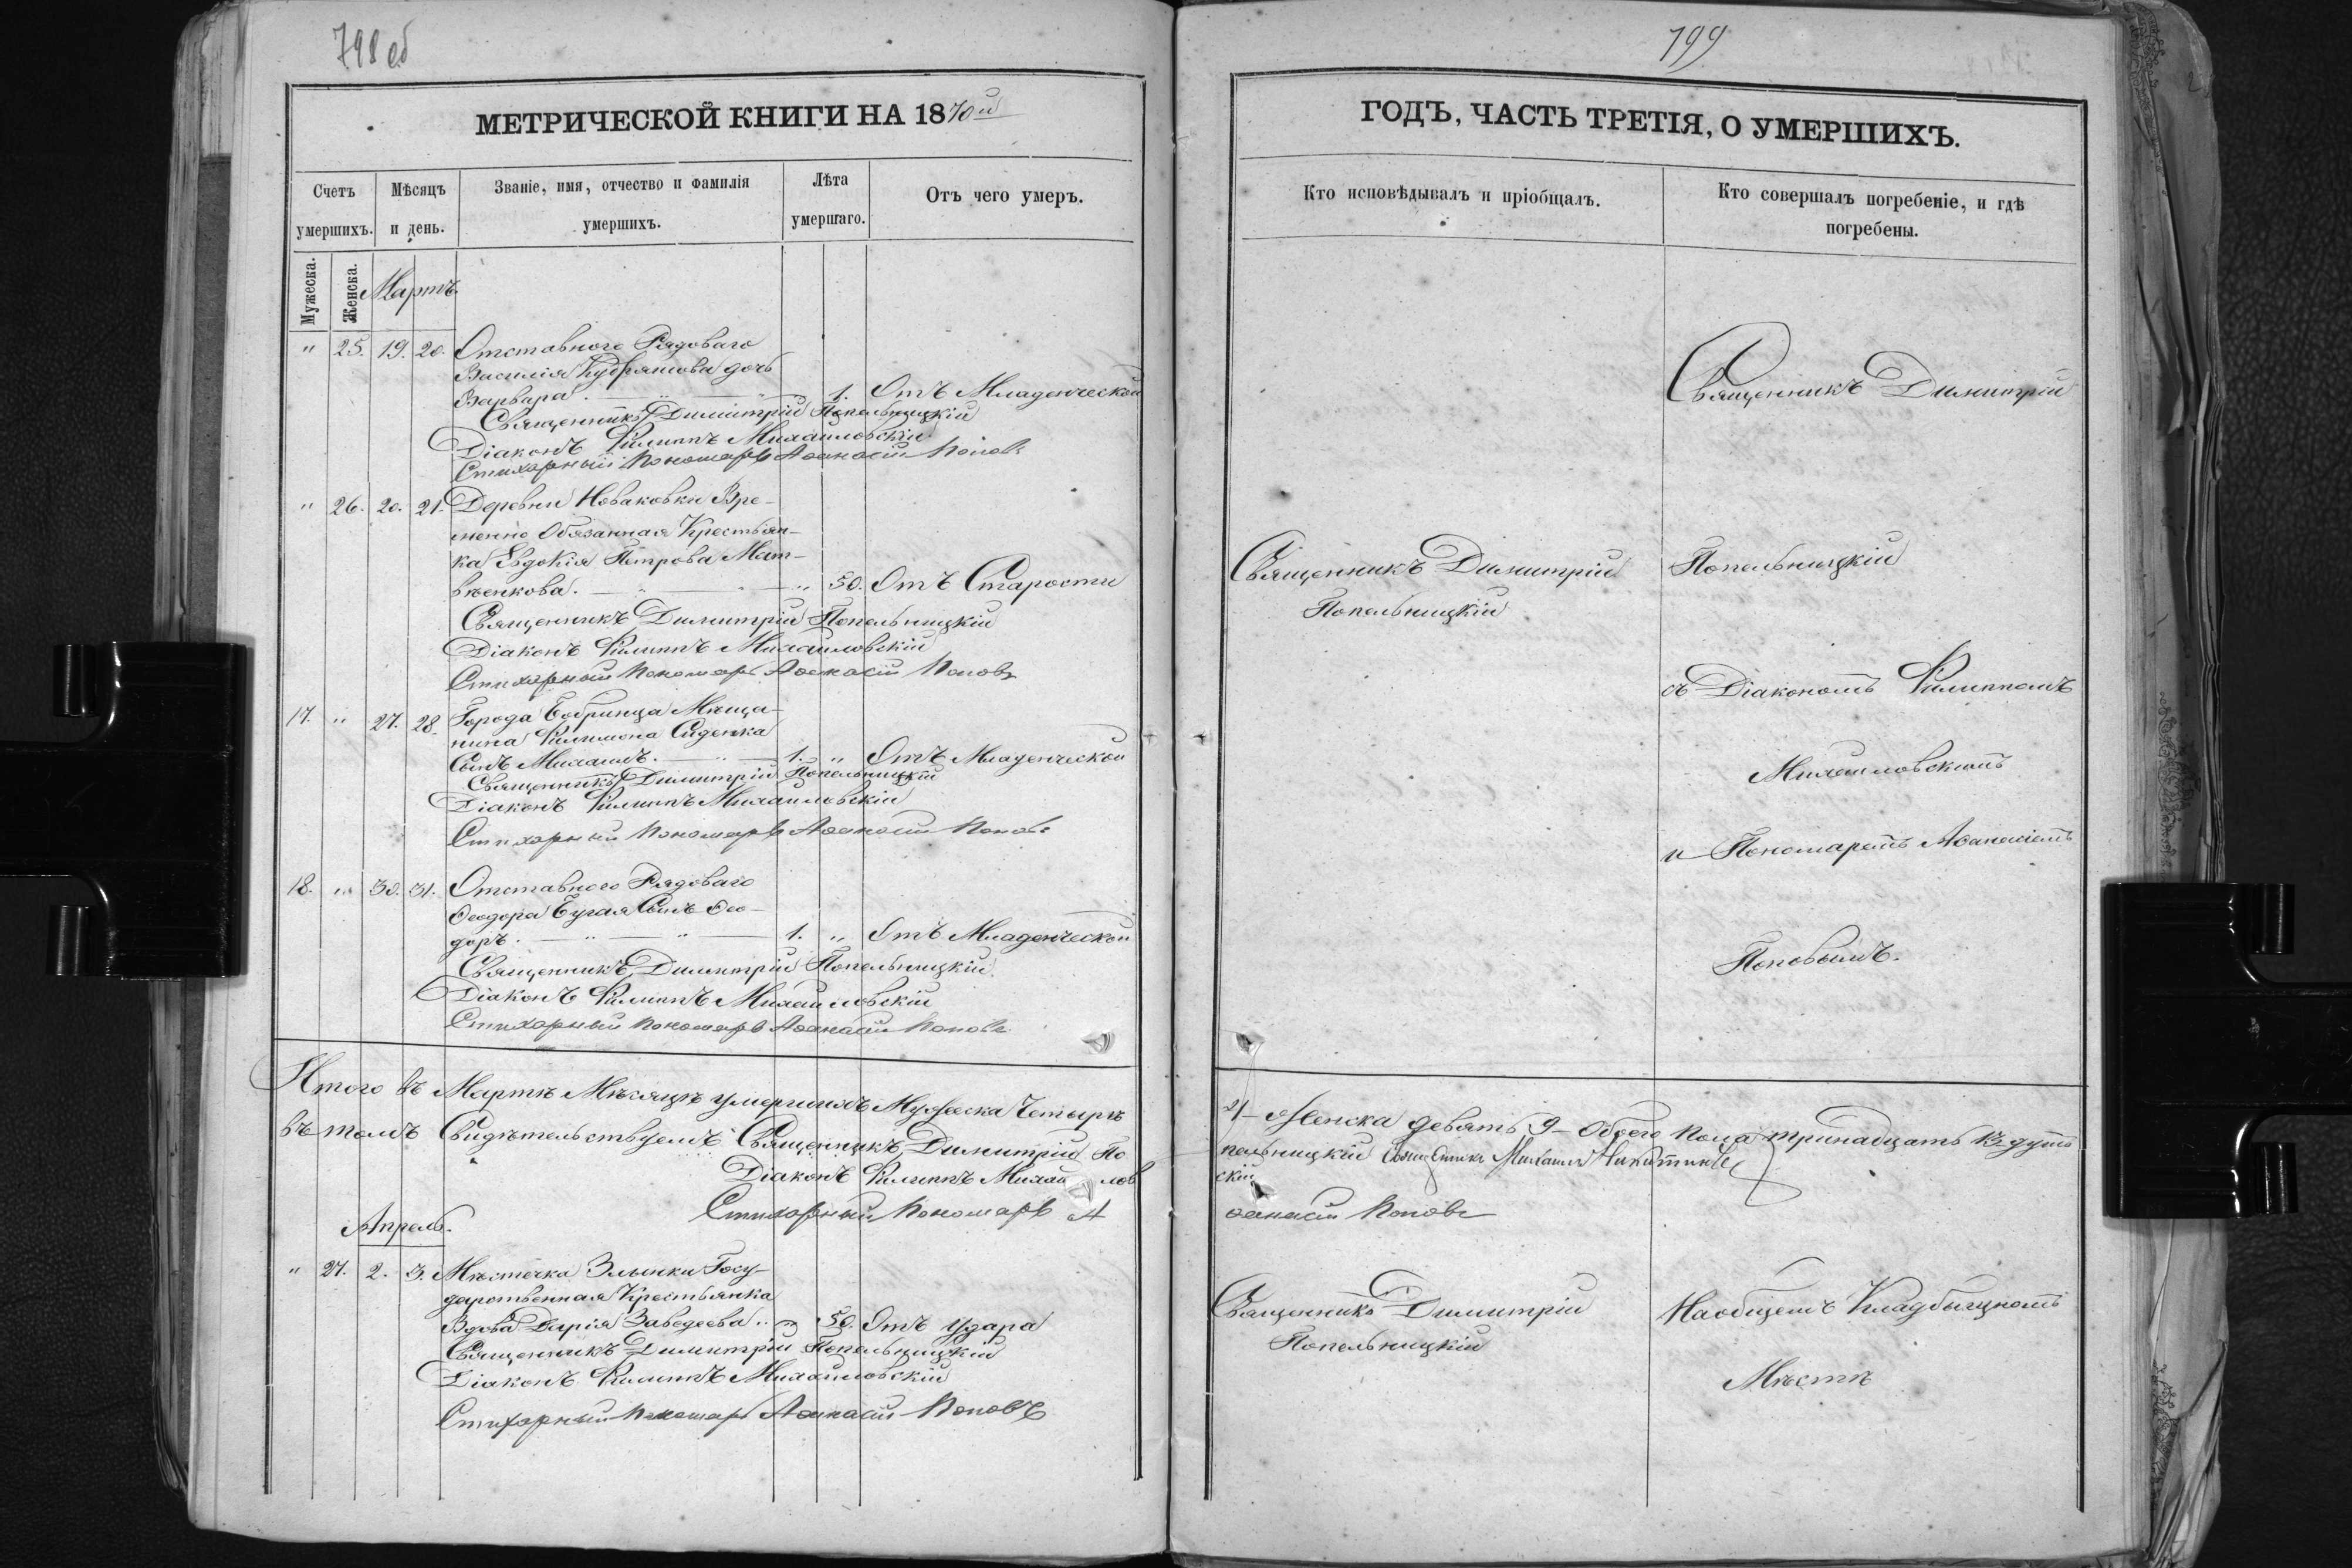 798 об
МЕТРИЧЕСКОЙ КНИГИ НА 1870й
Счетъ умершихъ.
Мѣсяцъ и день.
Званіе, имя, отчество и фамилія умершихъ.
Лѣта умершаго.
Отъ чего умеръ.
Мужеска.
Женска.
Мартъ.
" 25. 19. 20. Отставного Рядоваго
Василія Кудряшова дочь
Варвара. 1. Отъ Младенческой
Священникъ Димитрій Попельницкій
Діаконъ Филиппъ Михайловскій
Стихарный Пономарь Аѳанасій Поповъ
" 26. 20. 21. Деревни Новаковки Вре-
менно Обязанная Крестьян-
ка Евдокія Петрова Мат-
вѣенкова. " 50. Отъ Старости
Священникъ Димитрій Попельницкій
Діаконъ Филиппъ Михайловскій
Стихарный Пономарь Аѳанасій Поповъ
17. " 27. 28. Города Бобринца Мѣща-
нина Филимона Сиденка
Сынъ Михаилъ. 1. " Отъ Младенческой
Священникъ Димитрій Попельницкій
Діаконъ Филиппъ Михайловскій
Стихарный Пономарь Аѳанасій Поповъ
18. " 30. 31. Отставного Рядоваго
Ѳеодора Бугая Сынъ Ѳео-
доръ. 1. " Отъ Младенческой
Священникъ Димитрій Попельницкій
Діаконъ Филиппъ Михайловскій
Стихарный Пономарь Аѳанасій Поповъ
Итого въ Мартѣ Мѣсяцѣ умершихъ Мужеска Четырѣ
въ томъ Свидѣтельствуемъ Священникъ Димитрій По
Діаконъ Филиппъ Михайлов
Стихарный Пономарь А
Апрель.
" 27. 2. 3. Мѣстечка Злынки Госу-
дарственная Крестьянка
Вдова Дарія Заведеева. " 50. Отъ удара
Священникъ Димитрій Попельницкій
Діаконъ Филиппъ Михайловскій
Стихарный Пономарь Аѳанасій Поповъ
799
ГОДЪ, ЧАСТЬ ТРЕТІЯ, О УМЕРШИХЪ.
Кто исповѣдывалъ и пріобщалъ.
Кто совершалъ погребеніе, и гдѣ погребены.
Священникъ Димитрій
Священникъ Димитрій
Попельницкій
Попельницкій
съ Діакономъ Филиппомъ
Михайловскимъ
и Пономаремъ Аѳанасіемъ
Поповымъ.
4 Женска девять 9 Обоего Пола тринадцать
пельницкій Священникъ Михаилъ
скій
ѳанасій Поповъ
Священникъ Димитрій
Попельницкій
На общемъ Кладбищномъ
Мѣстѣ